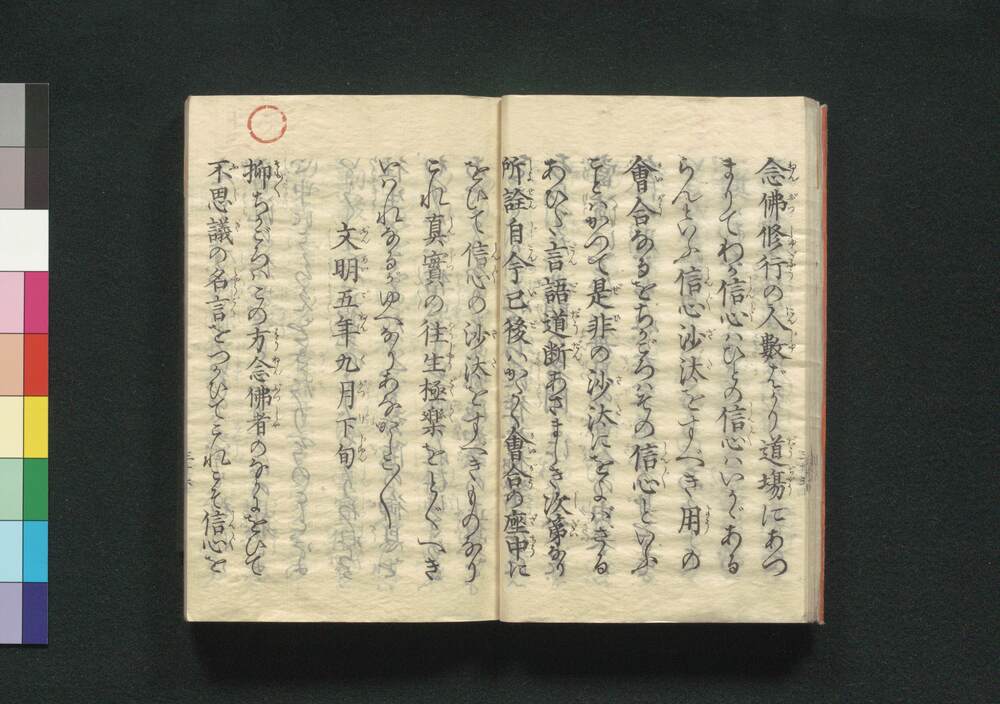 念佛修行の人數ばかり道塲にあつ
まりてわが信心ハひとの信心ハいかゞある
らんといふ信心沙汰をすべき用の
會合なるをちかごろハその信心といふ
ことハかつて是非の沙汰にをよバざる
あひだ言語道断あさましき次第なり
所詮自今已後ハかたく會合の座中に
をひて信心の沙汰をすべきものなり
これ真實の往生極楽をとぐべき
いはれなるがゆへなりあなかしこ〳〵
文明五年九月下旬
抑ちかごろハこの方念佛者のなかにをひて
不思議の名言をつかひてこれこそ信心を